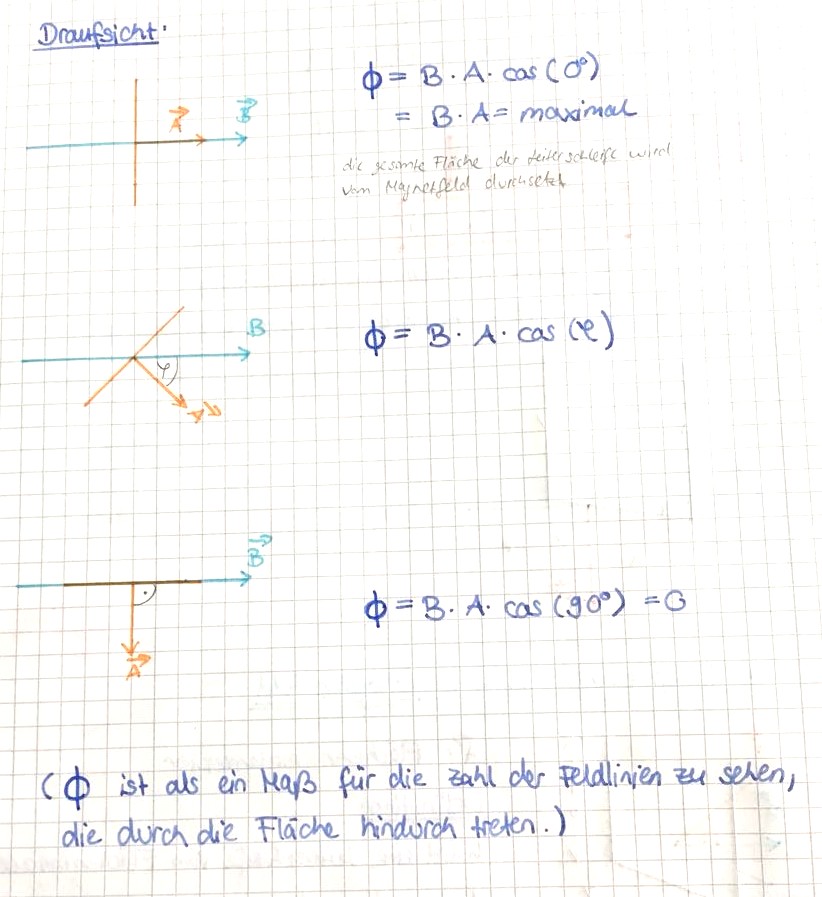 Draufsicht:
Φ = B · A · cos (0°)
= B · A = maximal
A⃗ B⃗
die gesamte Fläche der Leiterschleife wird
vom Magnetfeld durchsetzt
B
Φ = B · A · cos (φ)
φ
A⃗
B⃗
Φ = B · A · cos (90°) = 0
A⃗
(Φ ist als ein Maß für die Zahl der Feldlinien zu sehen,
die durch die Fläche hindurch treten.)